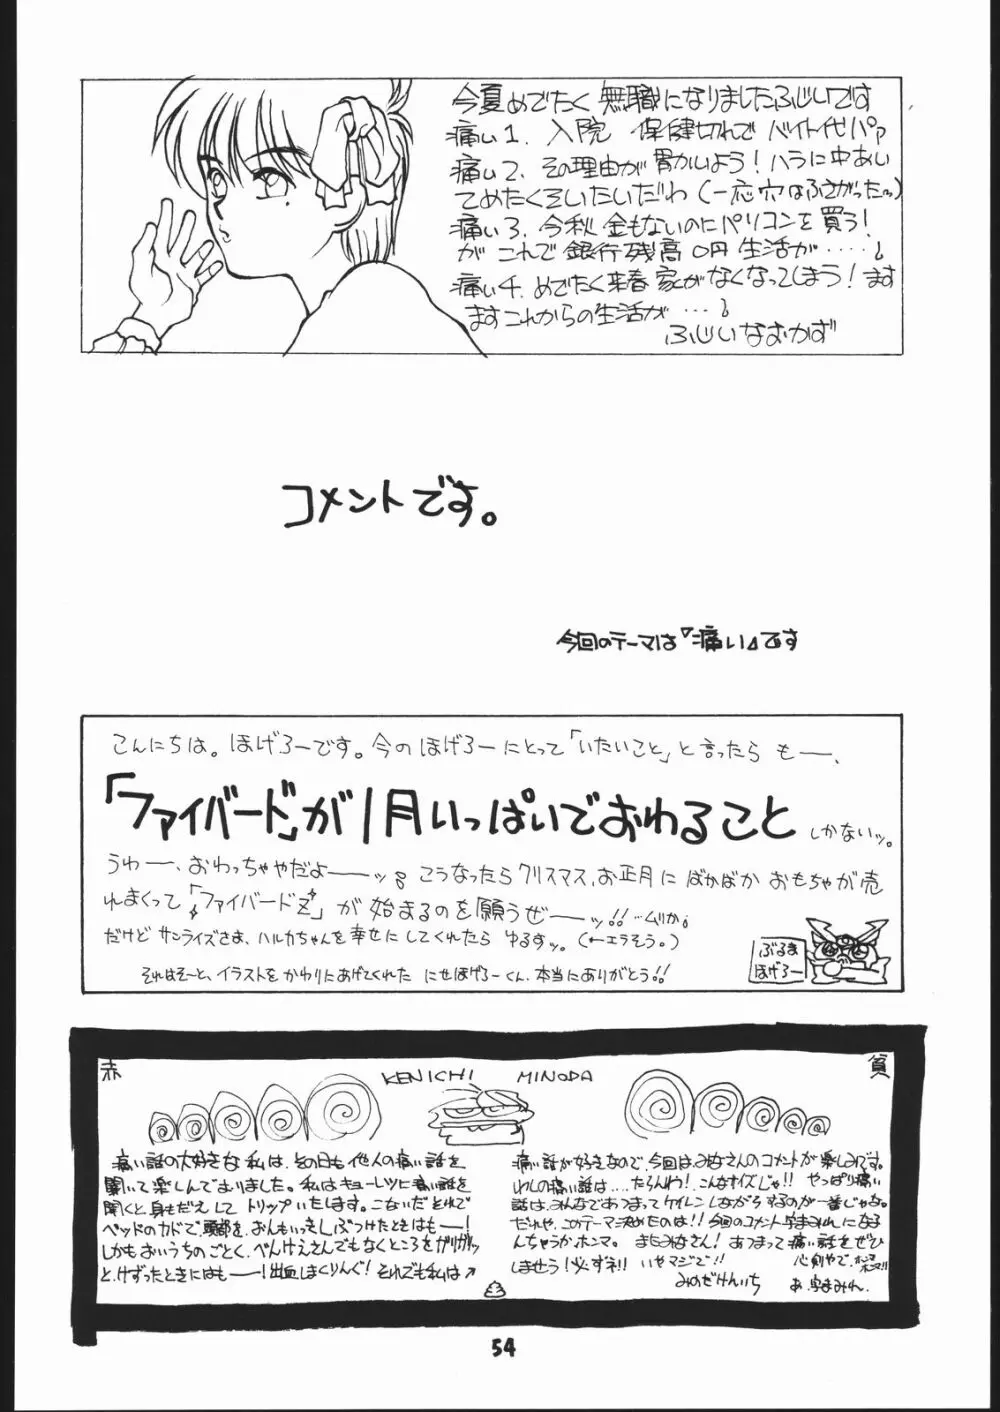 今夏めでたく 無職になりましたふじいです
痛い1、入院 保健切れで バイト代パァ
痛い2、その理由が胃かいよう!ハラに中あい
てめたくそいたいだわ(一応穴はふさがった〜)
痛い3、今秋 金もないのにパソコンを買う!
が これで銀行残高0円 生活が……
痛い4、めでたく来春 家がなくなってしまう!ます
ますこれからの生活が…
ふじいなおかず
コメントです。
今回のテーマは『痛い』です
こんにちは。ほげろーです。今のほげろーにとって「いたいこと」と言ったら もー、
「ファイバード」が1月いっぱいでおわること しかないッ。
うわー、おわっちゃやだよーッ。こうなったらクリスマス、お正月に ばかばか おもちゃが売
れまくって「ファイバードZ」が 始まるのを願うぜーッ!!…ムリか。
だけど サンライズさま、ハルカちゃんを幸せに してくれたら ゆるすッ。(←エラそう。)
それはそーと、イラストを かわりにあげてくれた にせほげろーくん、本当にありがとう!!
ぶるま
ほげろー
赤 KENICHI MINODA 貧
痛い話の大好きな私は、その日も他人の痛い話を
聞いて楽しんでまいりました。私はキョーレツに痛い話を
聞くと、身もだえして トリップいたします。こないだ とれで
ベッドのカドで、頭部を、おんもいっきし、ぶつけたときはもー!
しかもおいうちのごとく、べんけえさんでもなくところをガリガリッ
と、けずったときにはもー!出血しまくりんぐ!それでも私は↗
痛い話が好きなので、今回はみなさんのコメントが楽しみです。
わしの痛い話は....たらんわ!こんなサイズじゃ!! やっぱり痛い
話は、みんなであつまってケイレンしながらするのが一番じゃな。
だれや、このテーマ決めたのは!!今回のコメント
になる
んちゃうか、ホンマ。 またみなさん! あつまって 痛い話をぜひ
しませう!必ずネ!! いやマジで!!
みのだけんいち
54